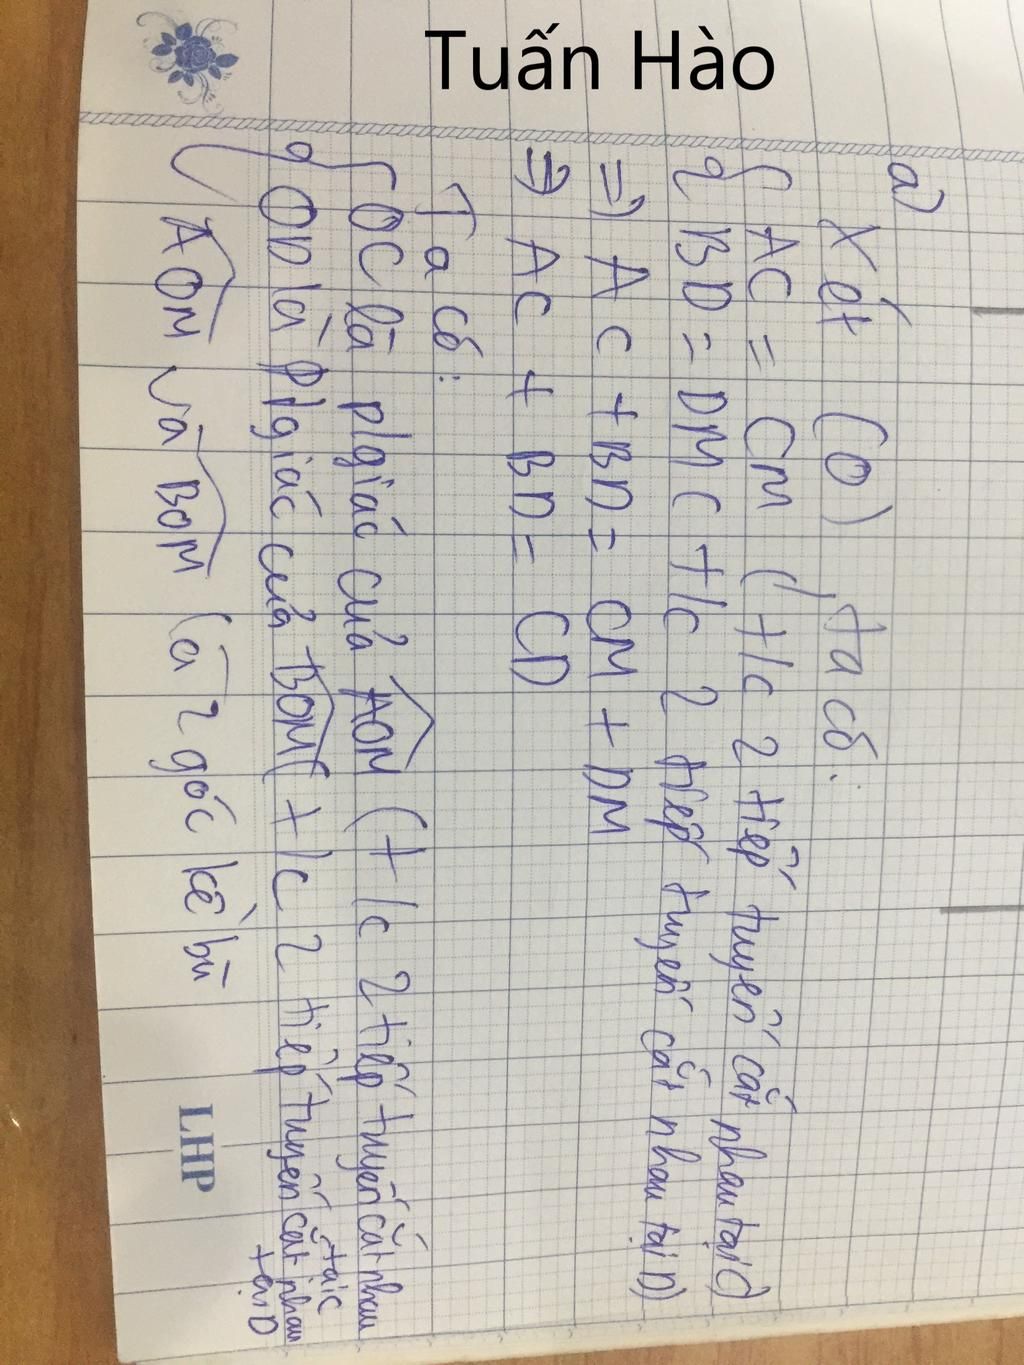 Tuấn Hào
a)
Xét (O), ta có:
{ AC = CM (t/c 2 tiếp tuyến cắt nhau tại C)
BD = DM (t/c 2 tiếp tuyến cắt nhau tại D)
=> AC + BD = CM + DM
=> AC + BD = CD
Ta có:
{ OC là p/giác của AOM (t/c 2 tiếp tuyến cắt nhau tại C
OD là p/giác của BOM (t/c 2 tiếp tuyến cắt nhau tại D
AOM và BOM là 2 góc kề bù
LHP